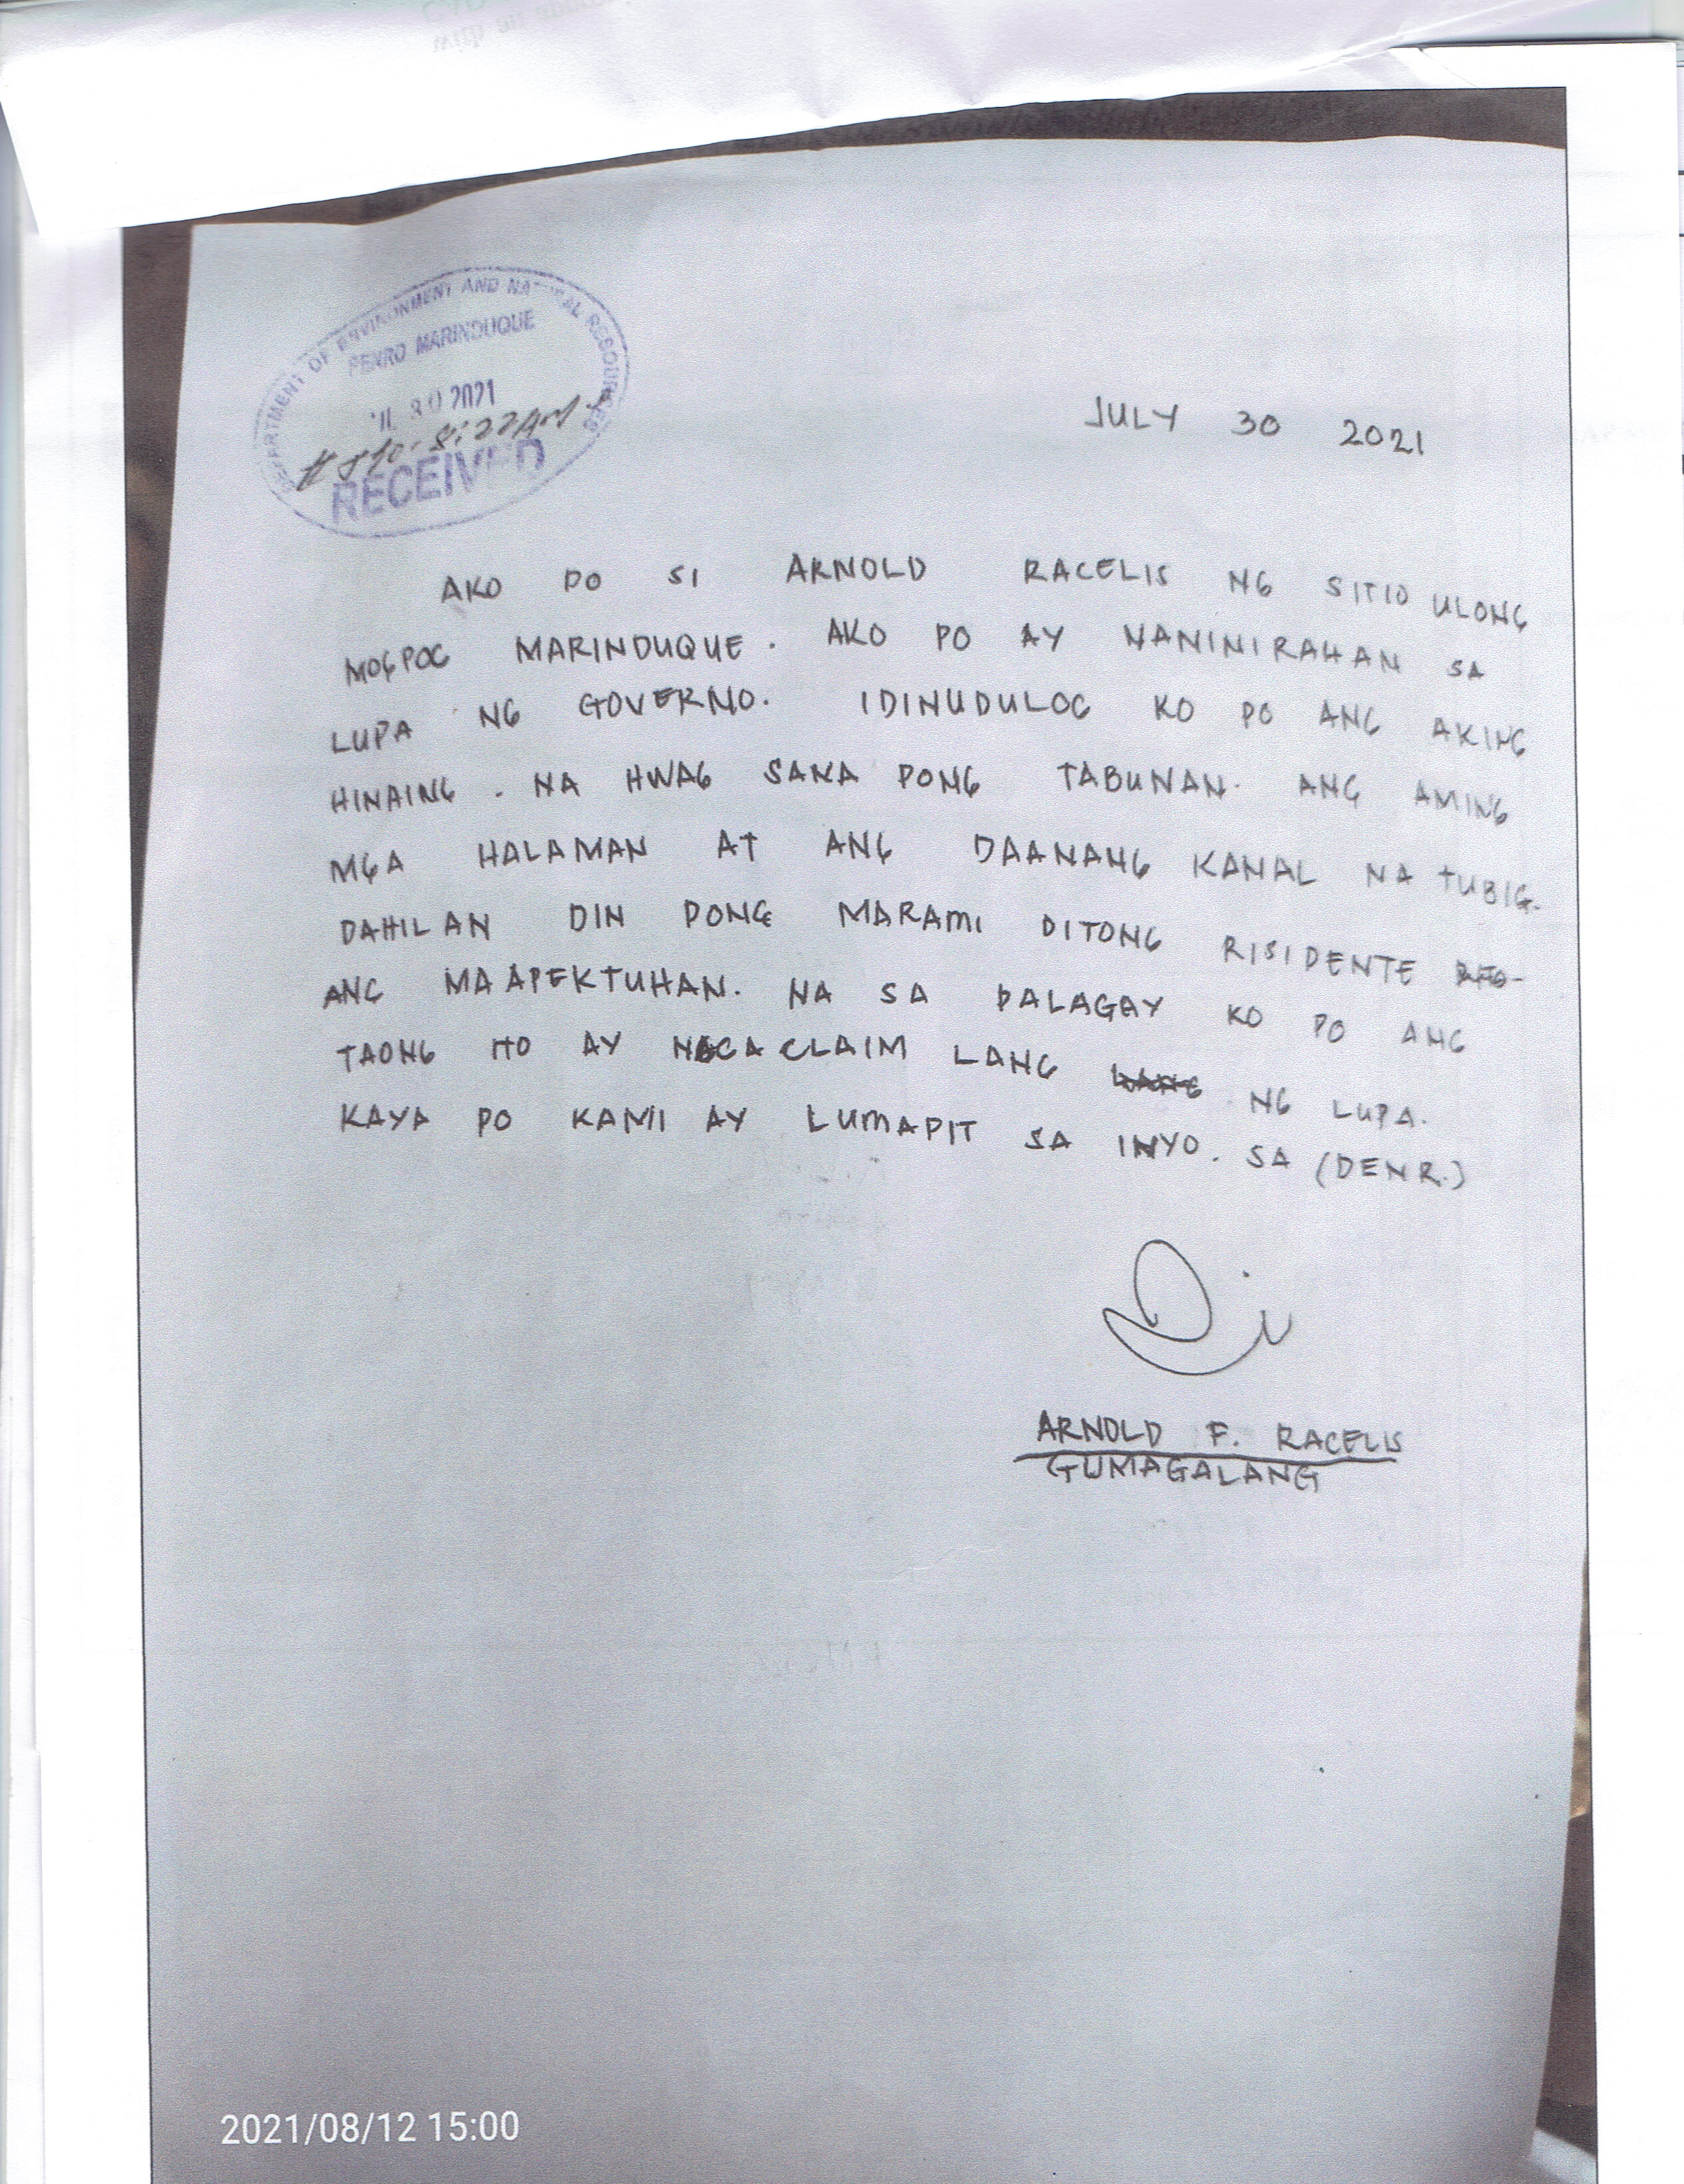 DEPARTMENT OF ENVIRONMENT AND NATURAL RESOURCES
PENRO MARINDUQUE
30 2021
8:22AM
RECEIVED
JULY 30 2021
AKO PO SI ARNOLD RACELIS NG SITIO ULONG
MOGPOG MARINDUQUE. AKO PO AY NANINIRAHAN SA
LUPA NG GOVERNO. IDINUDULOG KO PO ANG AKING
HINAING. NA HWAG SANA PONG TABUNAN. ANG AMING
MGA HALAMAN AT ANG DAANANG KANAL NA TUBIG.
DAHILAN DIN PONG MARAMI DITONG RISIDENTE
ANG MAAPEKTUHAN. NA SA PALAGAY KO PO ANG
TAONG ITO AY NAGACLAIM LANG NG LUPA.
KAYA PO KAMI AY LUMAPIT SA INYO. SA (DENR.)
ARNOLD F. RACELIS
GUMAGALANG
2021/08/12 15:00